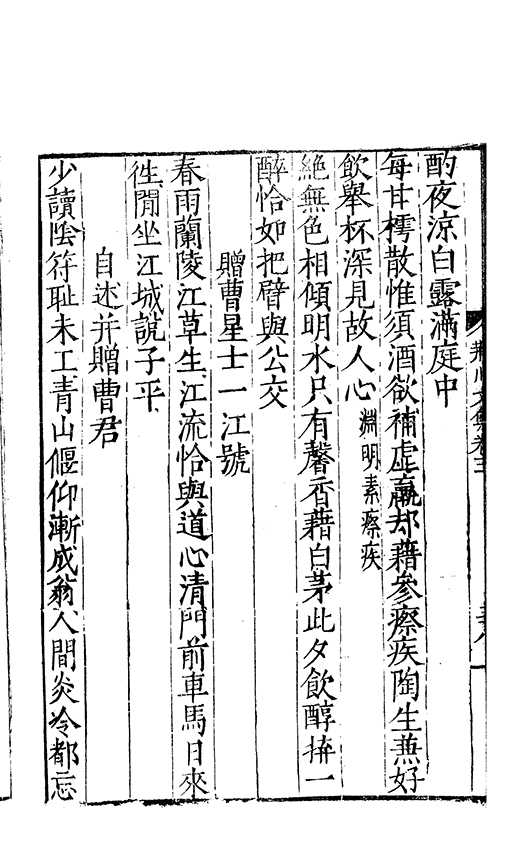 酌夜涼白露滿庭中
每甘樗散惟須酒欲補虛羸却藉參瘵疾陶生兼好
飲舉杯深見故人心淵明素瘵疾
絕無色相傾明水只有馨香藉白茅此夕飲醇拚一
醉恰如把臂與公交
贈曹星士一江號
春雨蘭陵江草生江流恰與道心清門前車馬日來
徃閒坐江城說子平
自述并贈曹君
少讀陰符耻未工青山偃仰漸成翁人間炎冷都忘
荆川文集卷三